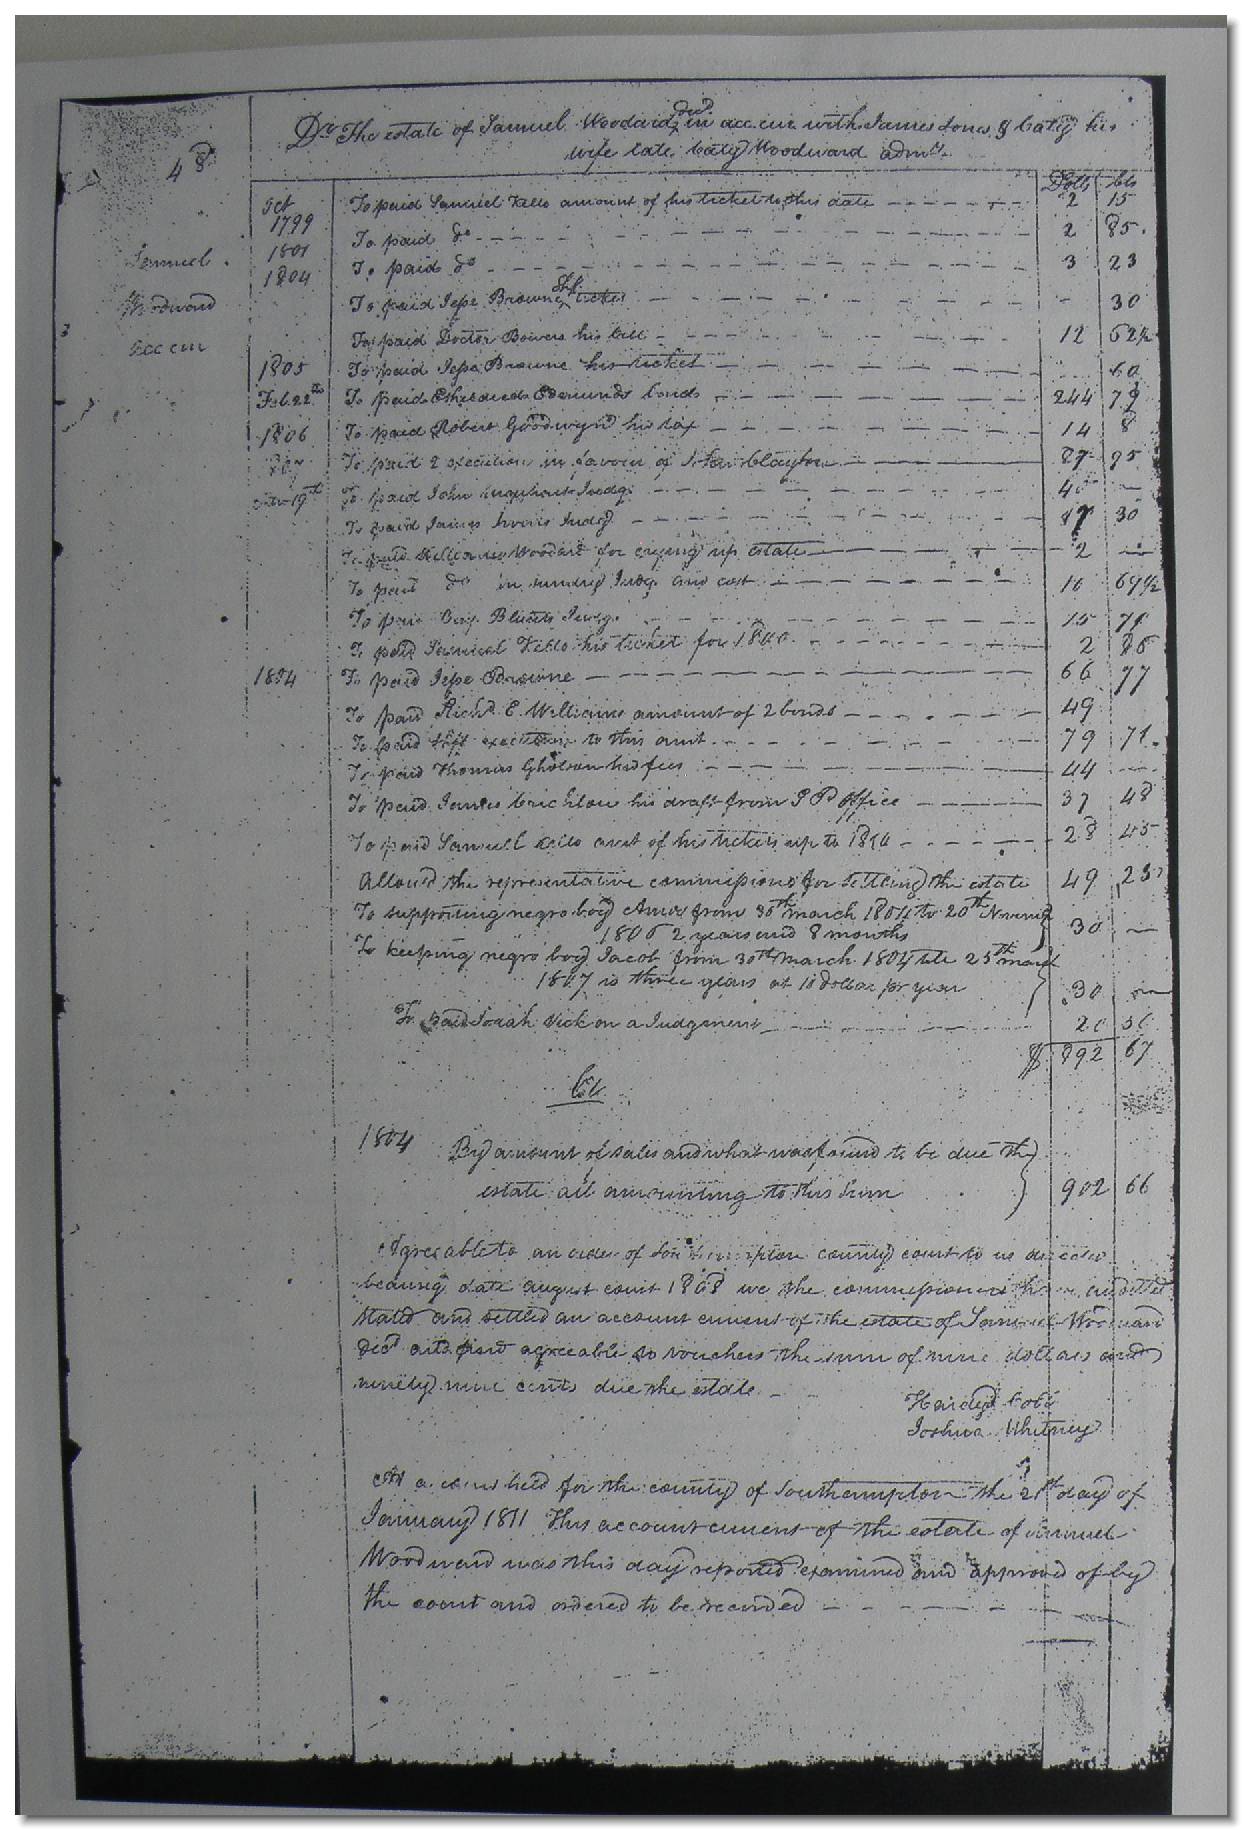 48
Samuel
Woodward
acc cur
Dr The estate of Samuel Woodard decd in acc cur with James Jones & Caty his
wife late Caty Woodward admrs
Dolls Cts
Oct 1799 To paid Samuel Kello amount of his ticket to this date 2 15
1801 To paid do 2 85
1804 To paid do 3 23
To paid Jesse Browne Shf ticket 30
To paid Doctor Bowers his bill 12 62½
1805 To paid Jesse Browne his ticket 60
Feb. 22th To paid Etheldred Edmunds bonds 244 79
1806 To paid Robert Goodwyn his tax 14 8
To paid 2 execution in favour of Clayton 87 95
19th To paid John Urquhart Judg. 40
To paid James Judg 30
To paid Woodard for crying up estate 2
To paid do in sundry Judg. and cost 10 69½
To paid Blunts Judg. 15 71
To paid Samuel Kello his ticket for 1800 2 85
1804 To paid Jesse Browne 66 77
To paid Richd E. Williams amount of 2 bonds 49
To paid execution to this amt 79 71
To paid Thomas Gholson his fees 44
To paid James Crichlow his draft from S P Office 37 48
To paid Samuel Kello amt of his tickets up to 28 45
Allow'd the representative commissions for settling the estate 49 25
To supporting negro boy Amos from 30th march 1804 to 20th
1806 2 years and 8 months 30
To keeping negro boy Jacob from 30th march 1804 till 25th march
1807 is three years at 10 dollar pr year 30
To paid Josiah Vick on a Judgment 20 50
$ 892 67
Cr
1804 By amount of sales and what was found to be due the
estate all amounting to this sum 902 66
Agreeable to an order of Southampton county court to us directed
bearing date august court 1808 we the commissioners have audited
stated and settled an account current of the estate of Samuel Woodward
decd and find agreeable to vouchers the sum of nine dollars and
ninety nine cents due the estate
Hardy Cobb
Joshua Whitney
At a court held for the county of Southampton the 21st day of
January 1811 This account current of the estate of Samuel
Woodward was this day reported examined and approved of by
the court and ordered to be recorded